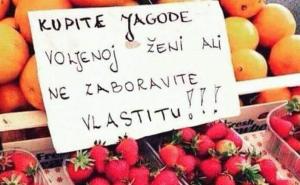 KUPITE JAGODE
VOLJENOJ ŽENI ALI
NE ZABORAVITE
VLASTITU!!!